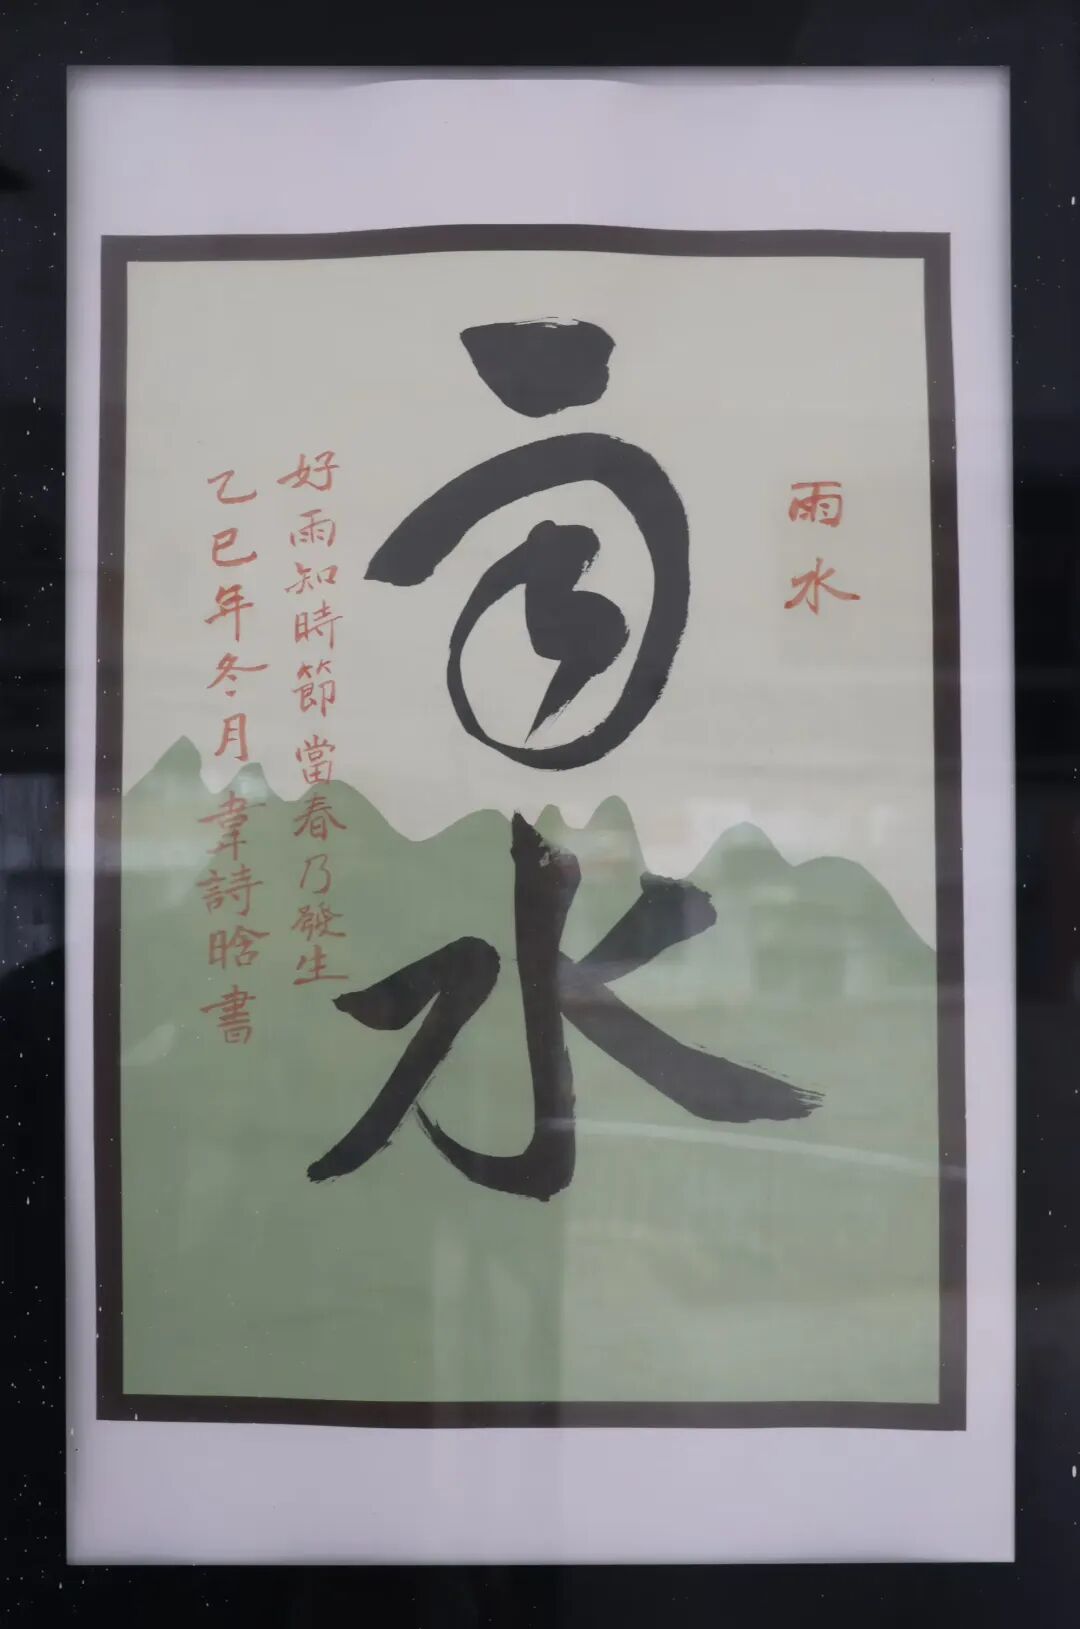 雨水
雨水
好雨知時節當春乃發生
乙巳年冬月韋詩晗書